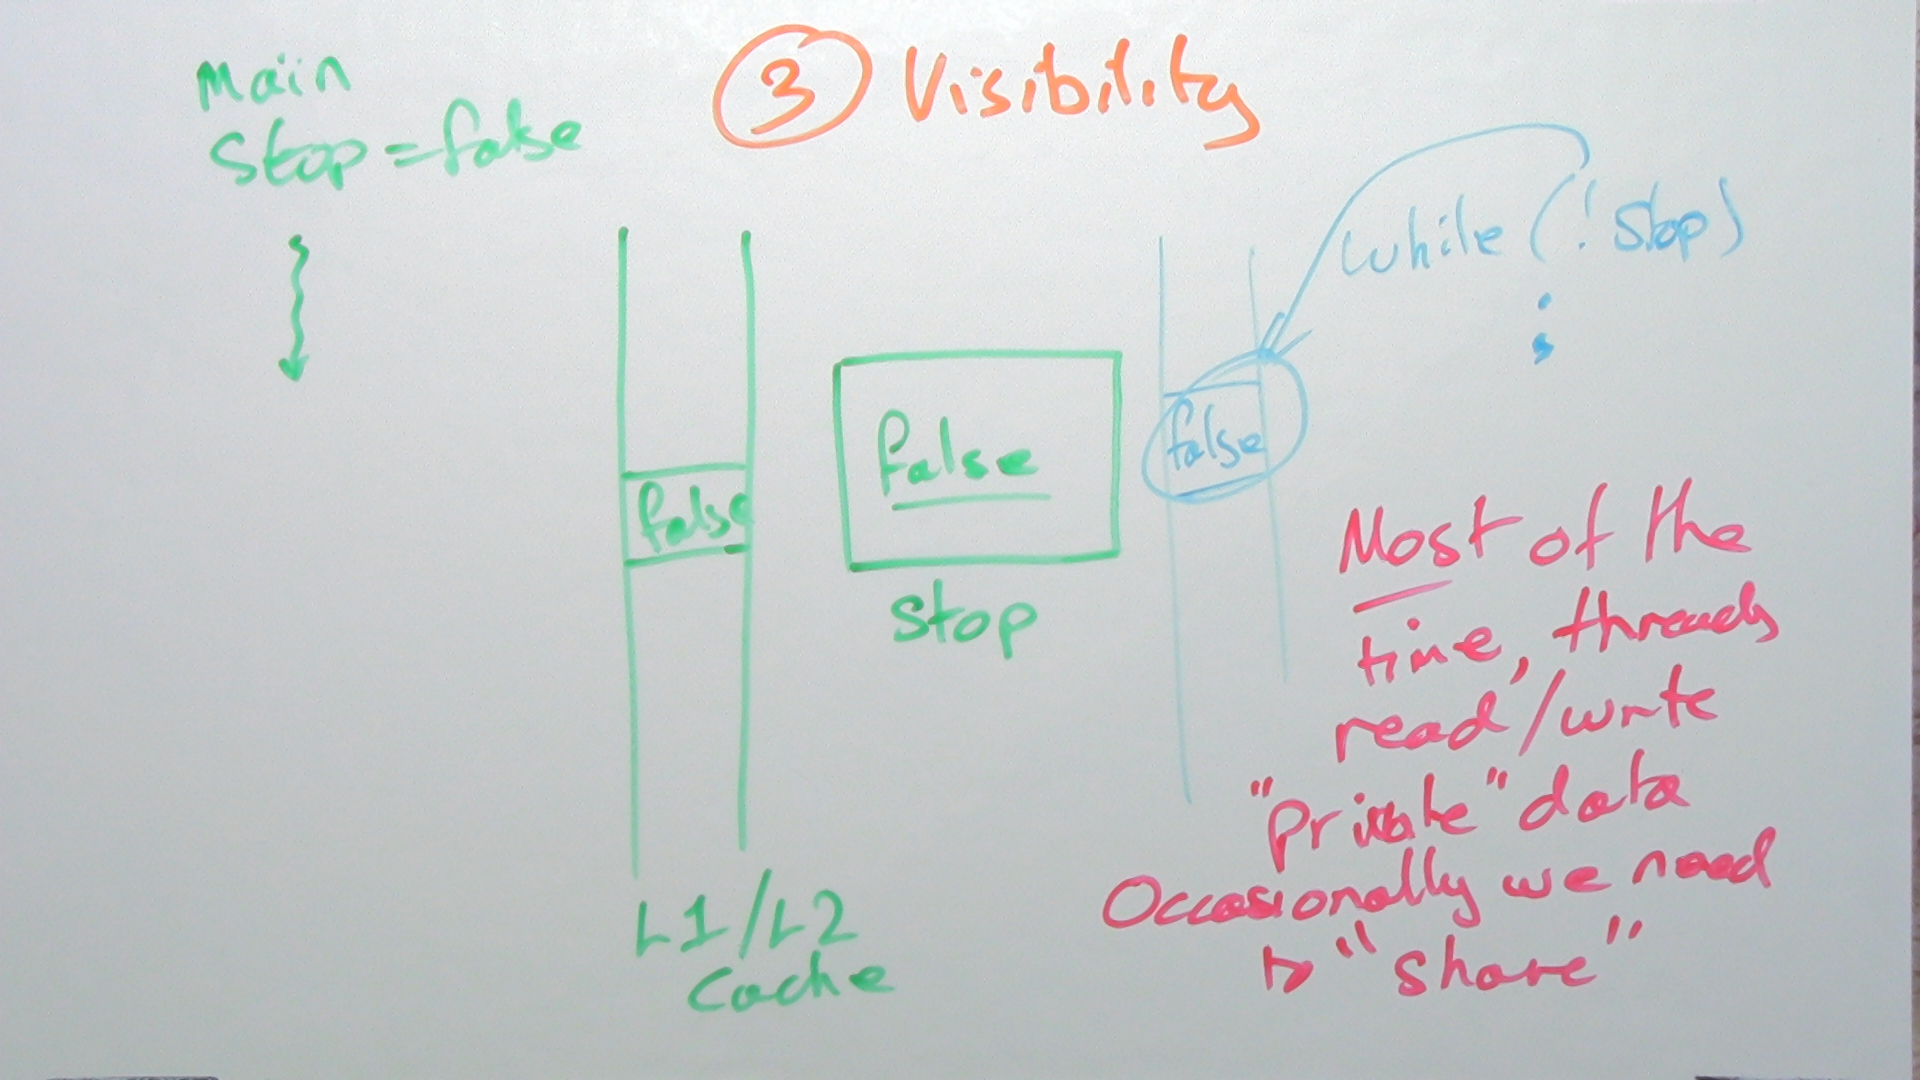 3 Visibility
Main
Stop = false
while (! stop)
;
false
false
false
stop
L1/L2
cache
Most of the
time, threads
read/write
"private" data
Occasionally we need
to "share"